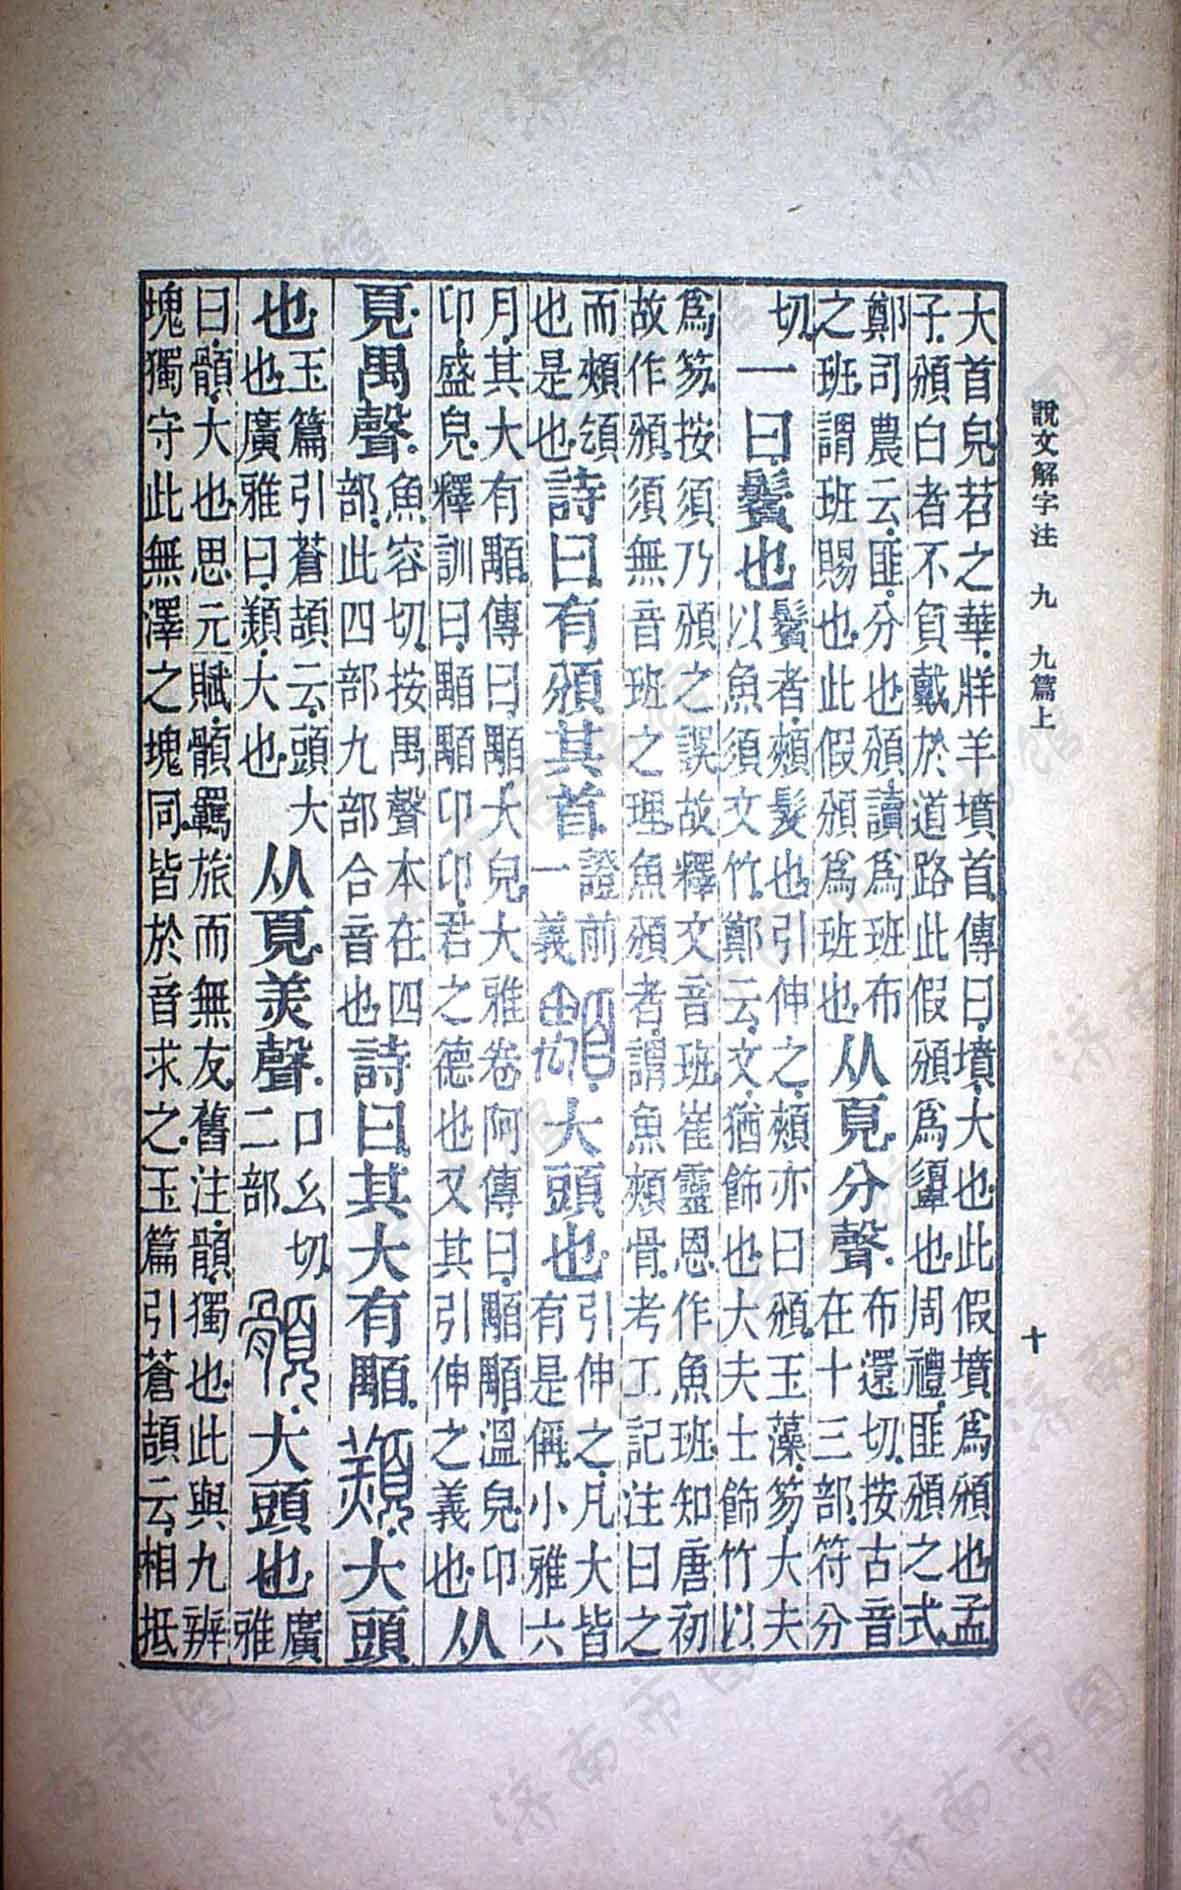 說文解字注 九 九篇上 十
大首皃苕之華牂羊墳首傳曰墳大也此假墳爲頒也孟
子頒白者不負戴於道路此假頒爲也周禮匪頒之式
鄭司農云匪分也頒讀爲班布
之班謂班賜也此假頒爲班也
从頁分聲
布還切按古音
在十三部符分
切
一曰鬢也
鬢者頰髮也引伸之頰亦曰頒玉藻笏大夫
以魚須文竹鄭云文猶飾也大夫士飾竹以
爲笏按須乃頒之誤故釋文音班崔靈恩作魚班知唐初
故作頒須無音班之理魚頒者謂魚頰骨考工記注曰之
而頰頷
也是也
詩曰有頒其首
證前
一義
顒大頭也
引伸之凡大皆
有是偁小雅六
月其大有顒傳曰顒大皃大雅卷阿傳曰顒顒溫皃卬
卬盛皃釋訓曰顒顒卬卬君之德也又其引伸之義也
从
頁禺聲
魚容切按禺聲本在四
部此四部九部合音也
詩曰其大有顒
䫞大頭
也
玉篇引蒼頡云頭大
也廣雅曰䫞大也
从頁羔聲
口幺切
二部
顝大頭也
廣
雅
曰顝大也思元賦顝羈旅而無友舊注顝獨也此與九辨
塊獨守此無澤之塊同皆於音求之玉篇引蒼頡云相抵